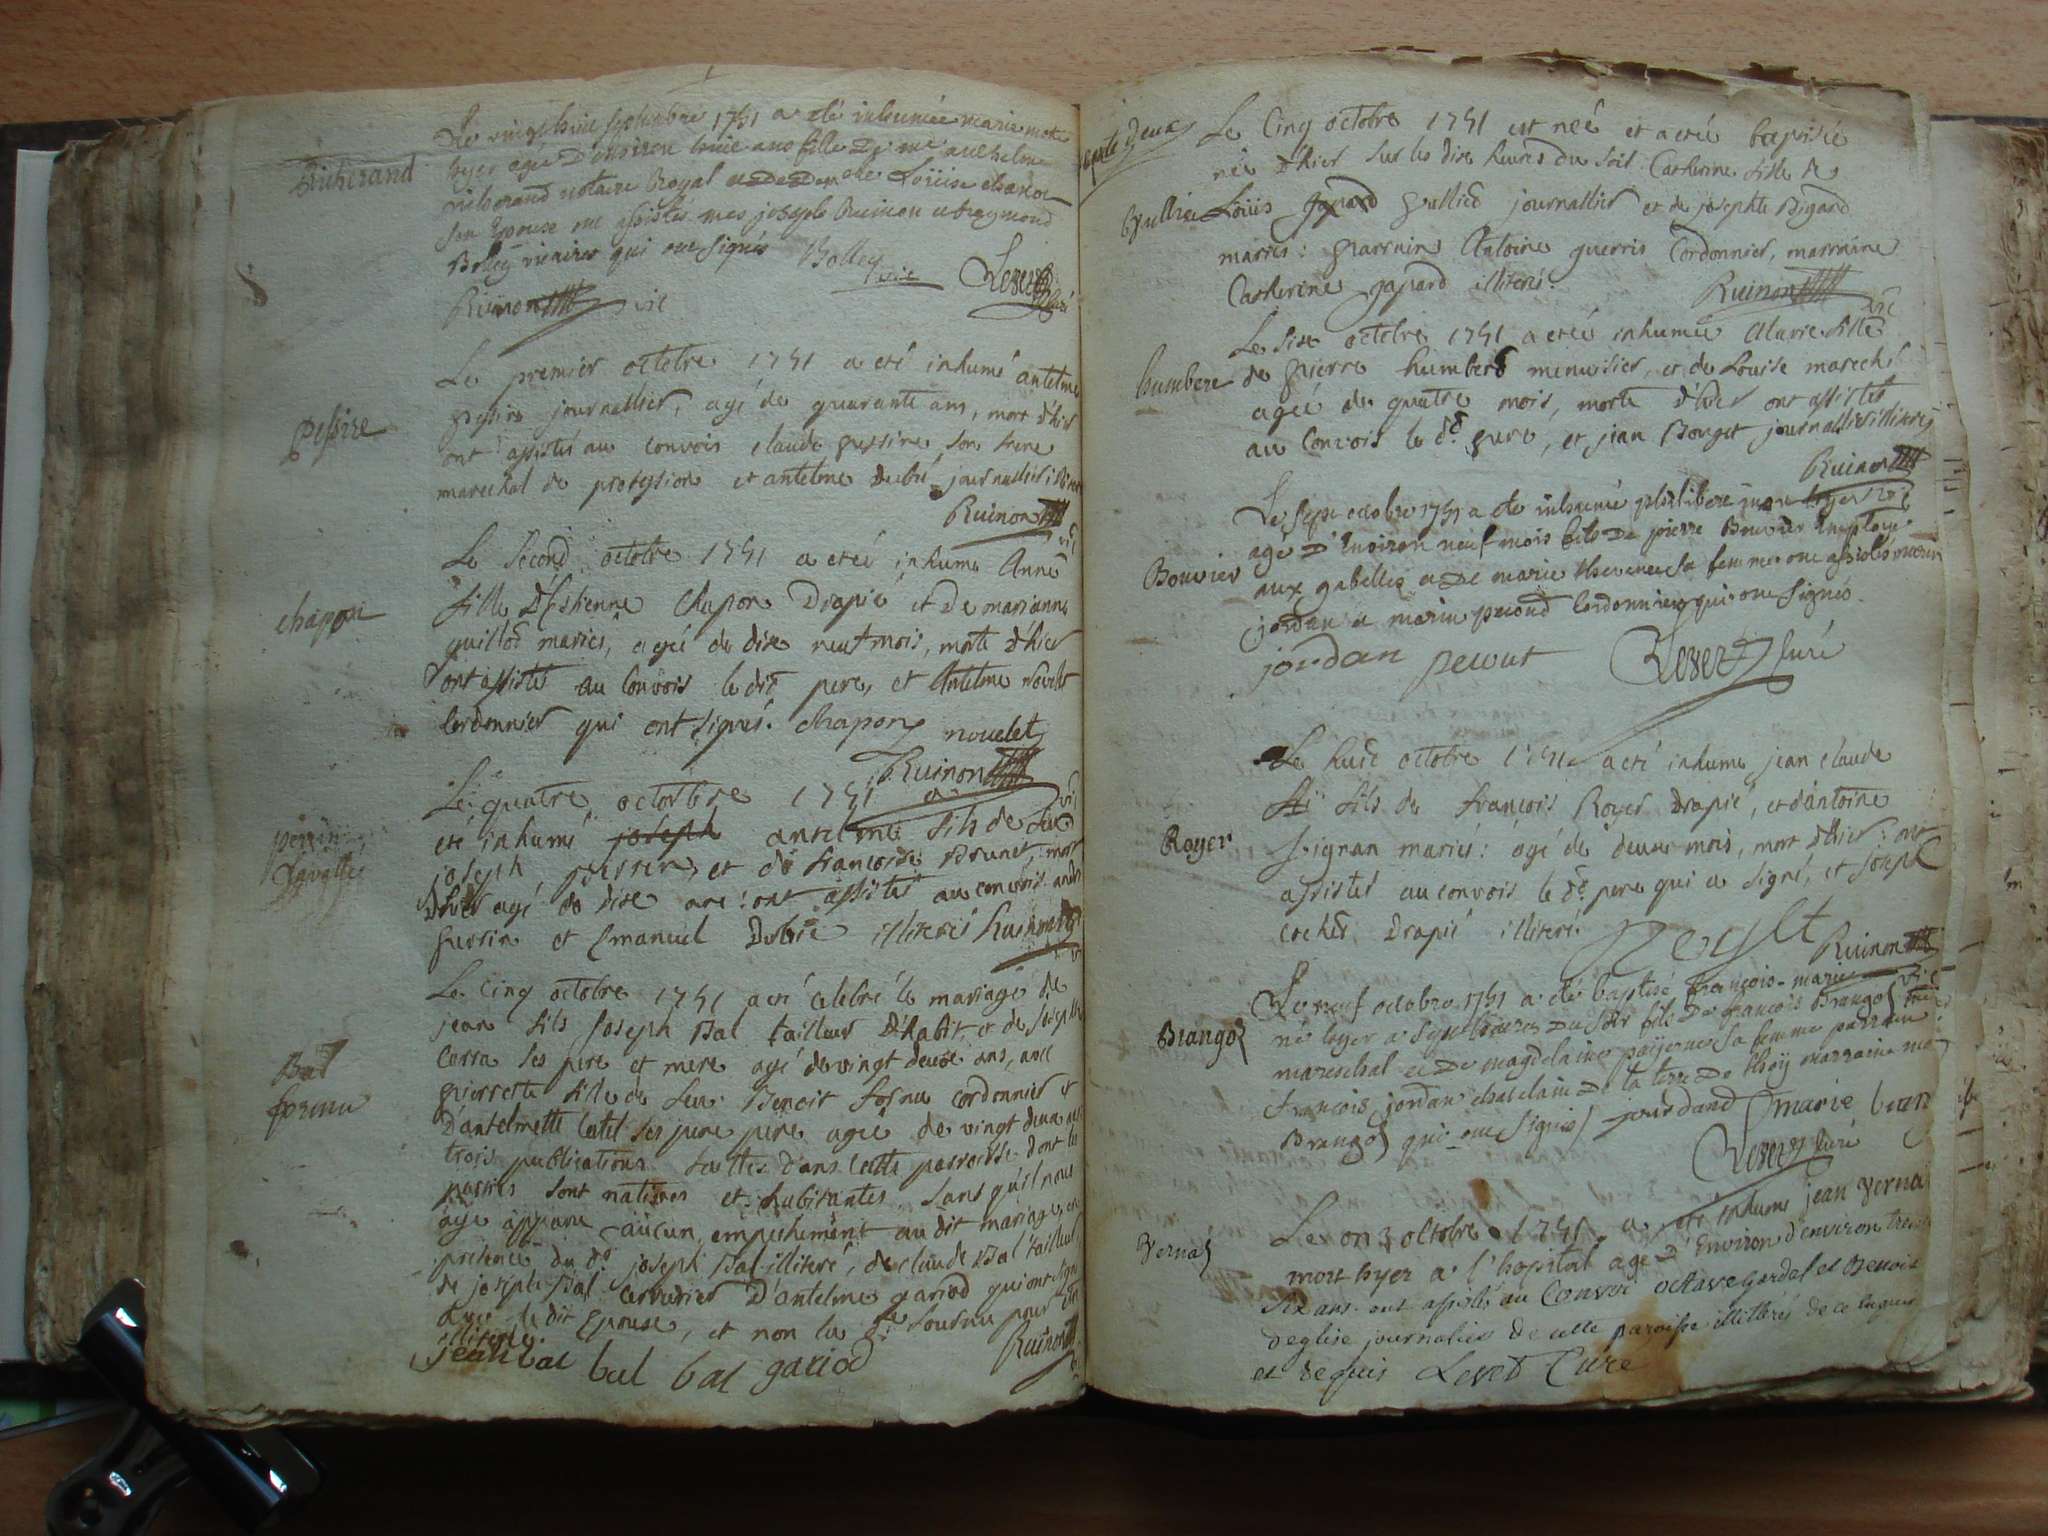 Richerand
Le vingt huit septembre 1751 a été inhumée marie morte
hyer agée D'environ ans fille De me anthelme
richerand notaire Royal et de Dem.elle Loüise
son Epouse ont assistés mes joseph Ruinon et Raymond
Bolley vicaires qui ont signés Bolley vic Levet Curé
Ruinon vic
pessire
Le premier octobre 1751 a eté inhumé antelme
pessire journallier, agé de quarante ans, mort d'hier
ont assistés au convois claude pessire son frere
marechal de profession et antelme dubié journallier
Ruinon vic
chapon
Le second octobre 1751 a eteé inhumé Anne
fille D'Estienne Chapon Drapié et De marianne
guillot mariés, agée de dix neuf mois, morte d'hier
ont assistés au Convois le dit pere, et Antelme nouelet
Cordonnier qui ont signés. chapon nouelet
Ruinon vic
perrin
Le quatre octobre 1751 a
eté inhumé joseph antelme fils de feu
joseph perrin, et de francoise Brunet, mort
d'hier agé de dix ans: ont assistés au convois
perrin et Emanuel Dubié illiterés Ruinon vic
Bal
fornu
Le Cinq octobre 1751 a eté celebré le mariage de
jean fils joseph Bal tailleur D'habit, et de joseph
Cerra ses pere et mere agé de vingt deux ans, avec
pierrette fille de feu Benoit fornu cordonnier et
D'antelmette ses pere agée de vingt deux ans
trois publications faittes dans cette parroisse dont les
parties sont natives et habitantes sans qu'il nous
aye apparu aucun empechement au dit mariage, en
presence du dt joseph Bal illiteré, de claude Bal tailleur,
de joseph Bal serrurier D'antelme gariod qui ont signé
avec le dit Epoux, et non la dte fornu pour être
illiterée. Ruinon
jean bal bal bal gariod
septe Deux
Le Cinq octobre 1751 est neé et a eteé baptisée
née d'hier sur les dix heures du soir Catherine fille de
Gullie Loüis gapard gullied journallier et de josephte Bigard
mariés: parrain Antoine guerris Cordonnier, marraine
Catherine gapard illiterés.
Ruinon vic
Le six octobre 1751 a eteé inhumée Marie fille
humbert de pierre humbert menuisier, et de Louise
ageé de quatre mois, morte d'hier ont assistés
au Convois le dt pere, et jean Bouget journallier illiterés
Ruinon vic
Le sept octobre 1751 a eté inhumé philibert mort hyer
Bouvier agé D'Environ neuf mois fils De pierre Bouvier Employé
aux gabelles et De marie sa femme ont assistés
jordan et marin pecoud Cordonnier qui ont signés
jordan pecout Levet Curé
Le huit octobre 1751 a eté inhumé jean claude
fils de francois Royer Drapié, et d'antoine
Royer
pignan mariés: agé de deux mois, mort d'hier: ont
assistés au convois le dt pere qui a signé, et joseph
cochet Drapié illiteré.
Ruinon vic
Le neuf octobre 1751 a été baptisé françois-marie
Brangos né hyer a sept heures Du soir fils De françois Brangos
mareschal et De magdelaine sa femme parrain
francois jordan chatelain De la terre De thoy marraine
Brangos qui ont signés jourdand marie
Levet Curé
Vernas
Le onz octobre 1751 a eté inhumé jean Vernas
mort hyer a l'hopital agé D'Environ d'environ trente
six ans. ont assistés au Convoi octave Gardel et Benoit
deglise journalier de cette paroisse illitérés de ce enquis
et requis Levet Curé